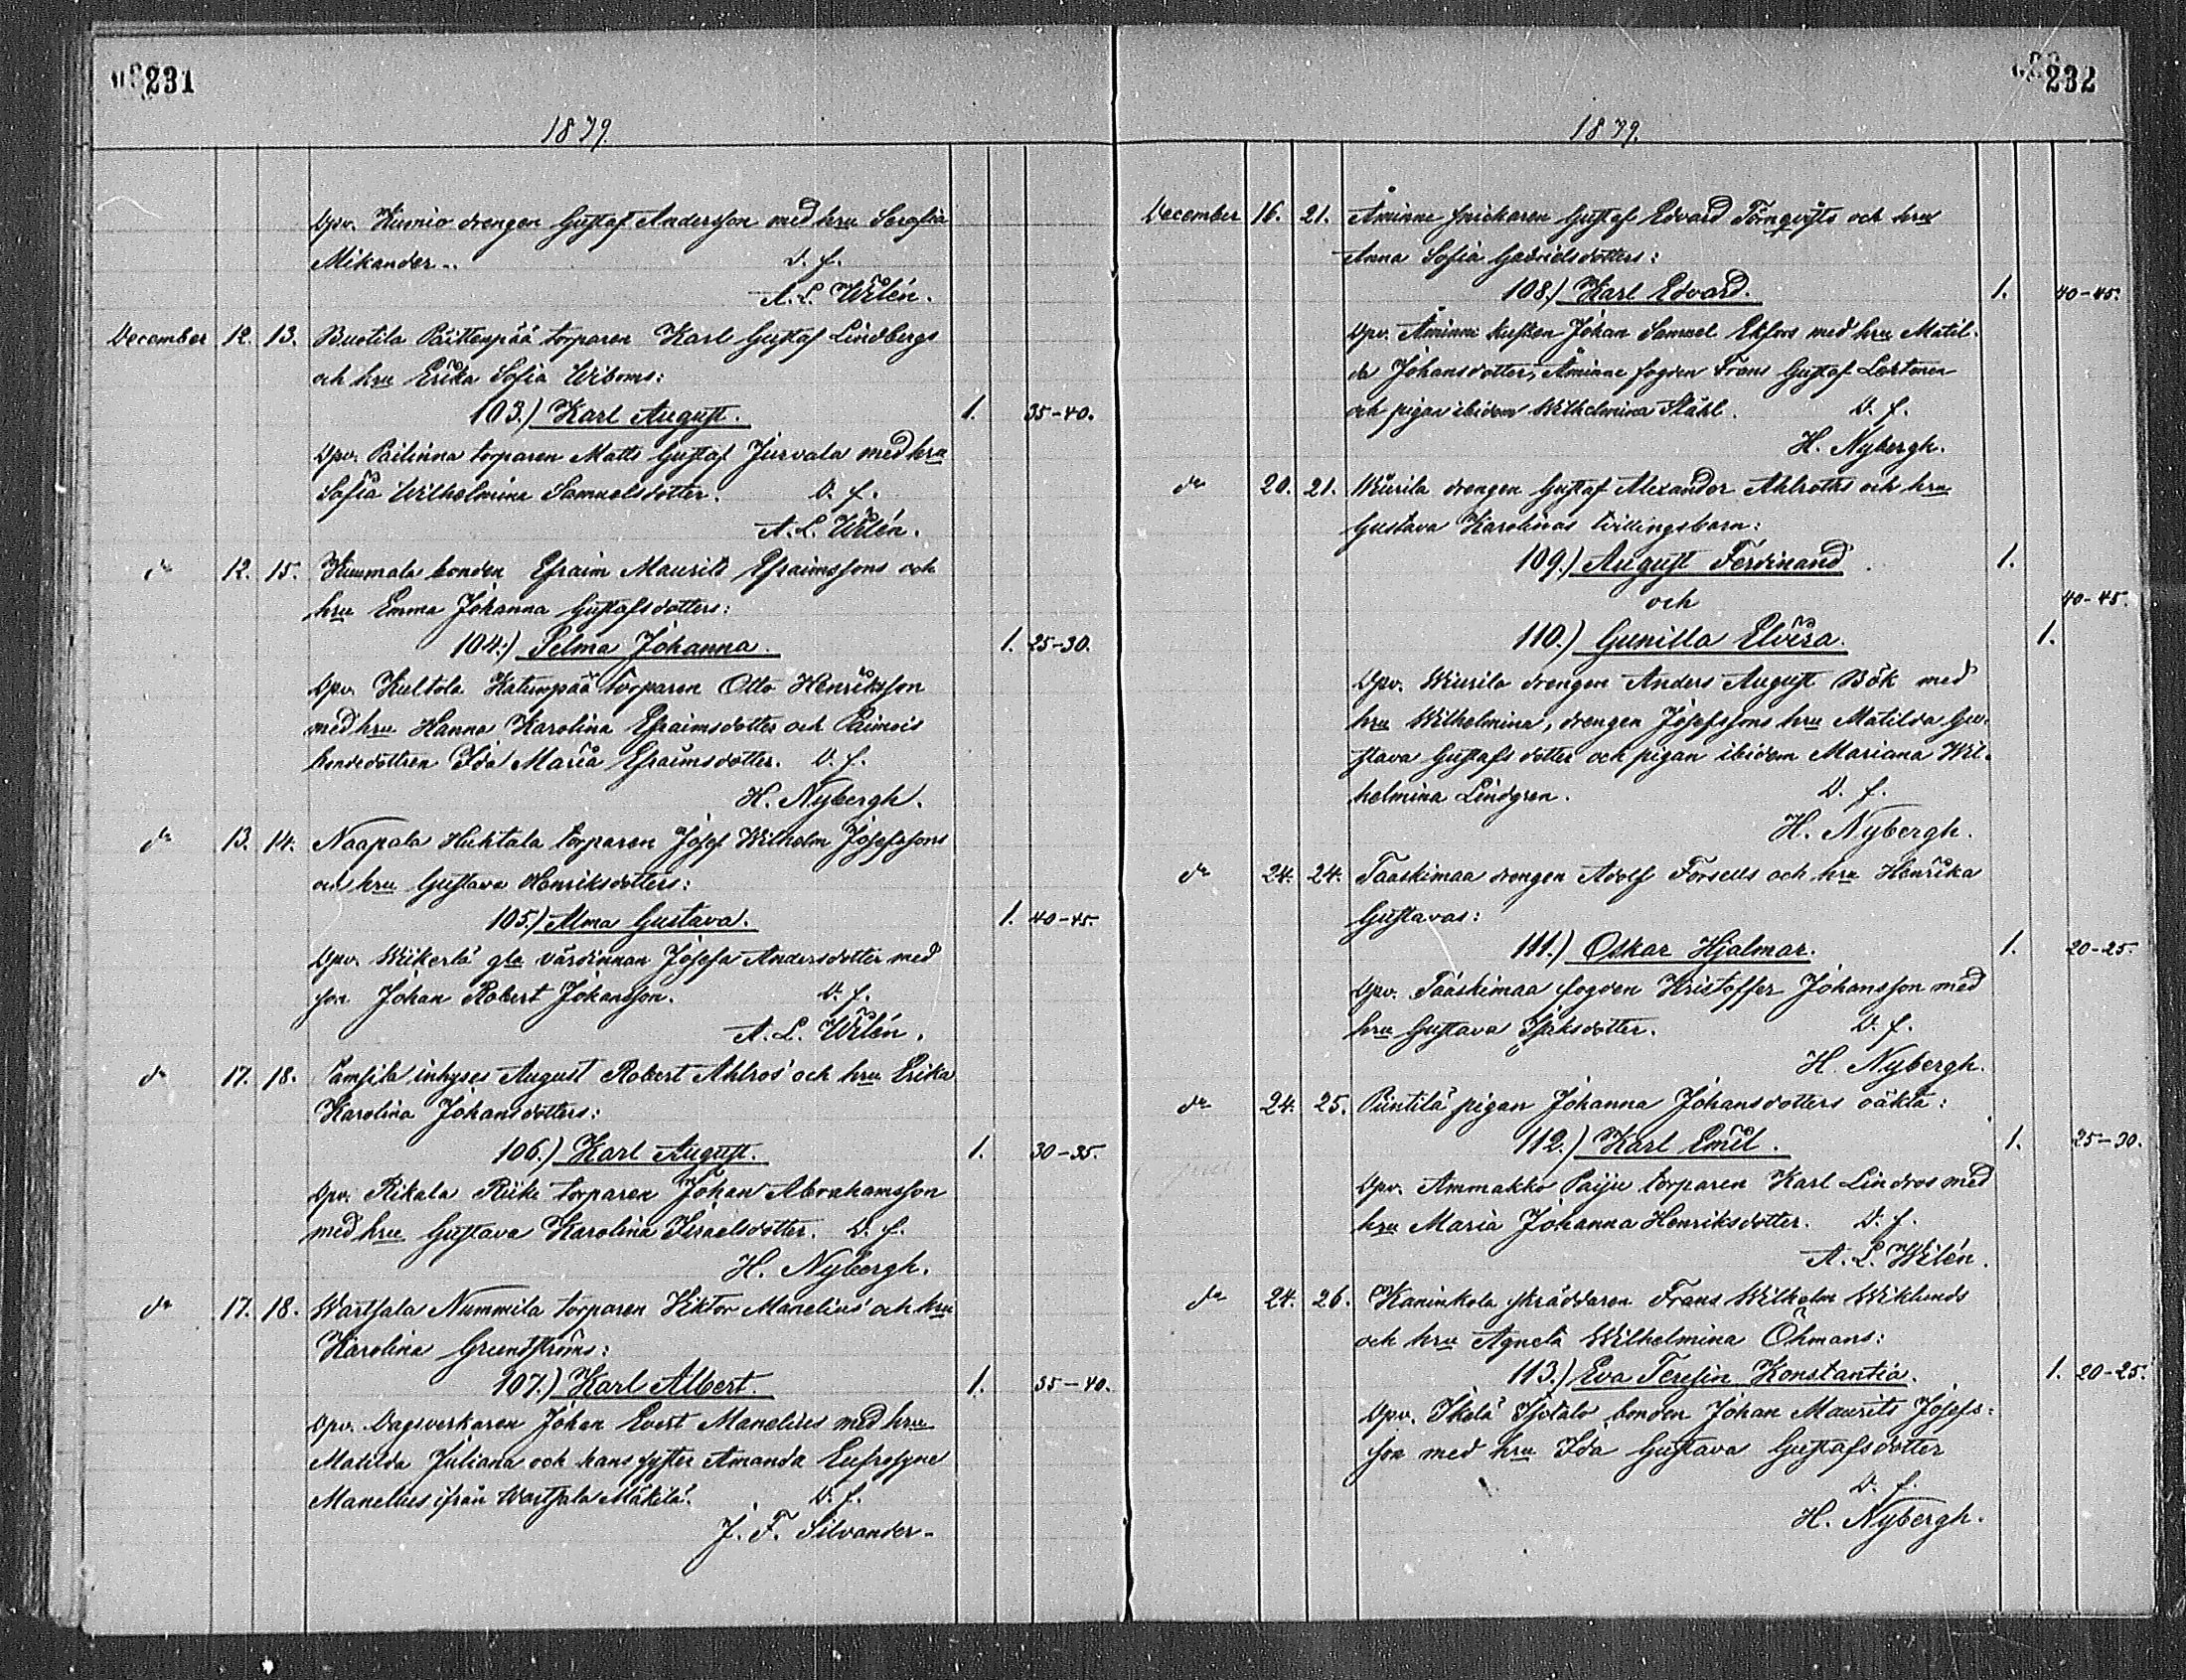 231
1879.
Dpv. Kumio drengen Gustaf Andersson med hru Serafia
Mikander. D. f.
A. L. Wilén.
December 12. 13. Buotila Päittenpää torparen Karl Gustaf Lindbergs
och hru Erika Sofia Wiboms:
103.) Karl August. 1. 35-40.
Dpv. Pailinna torparen Matts Gustaf Jurvala med hru
Sofia Wilhelmina Samuelsdotter. D. f.
A. L. Wilén.
do 12. 15. Kuumala bonden Efraim Maurits Efraimssons och
hru Emma Johanna Gustafsdotters:
104.) Selma Johanna. 1. 25-30.
Dpv. Kultola Katumpää torparen Otto Henriksson
med hru Hanna Karolina Efraimsdotter och Paimois
bondedottren Ida Maria Efraimsdotter. D. f.
H. Nybergh.
do 13. 14. Naapala Huhtala torparen Josef Wilhelm Josefssons
och hru Gustava Henriksdotters:
105.) Alma Gustava. 1. 40-45.
Dpv. Wiikerlä gla värdinnan Josefa Andersdotter med
son Johan Robert Johansson. D. f.
A. L. Wilén.
do 17. 18. Tamsila inhyses August Robert Ahlros' och hru Erika
Karolina Johansdotters:
106.) Karl August. 1. 30-35.
Dpv. Rikala Riiki torparen Johan Abrahamsson
med hru Gustava Karolina Israelsdotter. D. f.
H. Nybergh.
do 17. 18. Wartsala Nummila torparen Viktor Manelius' och hru
Karolina Grundströms:
107.) Karl Albert. 1. 35-40.
Dpv. Dagsverkaren Johan Evert Manelius med hru
Matilda Juliana och hans syster Amanda Eufrosyne
Manelius ifrån Wartsala Mäkilä. D. f.
J. F. Silvander.
232
1879.
December 16. 21. Åminne snickaren Gustaf Edvard Törnqvists och hru
Anna Sofia Gabrielsdotters:
108.) Karl Edvard. 1. 40-45.
Dpv. Åminne kusken Johan Samuel Ekfors med hru Matil-
da Johansdotter, Åminne fogden Frans Gustaf Lostonen
och pigan ibidem Wilhelmina Ståhl. D. f.
H. Nybergh.
do 20. 21. Wiurila drengen Gustaf Alexander Ahlroths och hru
Gustava Karolinas tvillingsbarn:
109.) August Ferdinand 1.
och 40-45.
110.) Gunilla Elvira. 1.
Dpv. Wiurila drengen Anders August Bök med
hru Wilhelmina, drengen Josefssons hru Matilda Gu-
stava Gustafsdotter och pigan ibidem Mariana Wil-
helmina Lindgren. D. f.
H. Nybergh.
do 24. 24. Taaskimaa drengen Adolf Forsells och hru Henrika
Gustavas:
111.) Oskar Hjalmar. 1. 20-25.
Dpv. Taaskimaa fogden Kristoffer Johansson med
hru Gustava Isaksdotter. D. f.
H. Nybergh.
do 24. 25. Puntila pigan Johanna Johansdotters oäkta:
112.) Karl Emil. 1. 25-30.
Dpv. Ammakko Paiju torparen Karl Lindros med
hru Maria Johanna Henriksdotter. D. f.
A. L. Wilén.
do 24. 26. Kaninkola skräddaren Frans Wilhelm Wiklunds
och hru Agneta Wilhelmina Öhmans:
113.) Eva Teresia Konstantia. 1. 20-25.
Dpv. Isotalo bonden Johan Maurits Josefs-
son med hru Ida Gustava Gustafsdotter
D. f.
H. Nybergh.